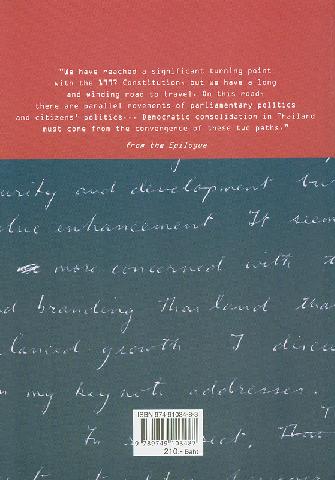 "We have reached a significant turning point
with the 1997 Constitution, but we have a long
and winding road to travel. On this road,
there are parallel movements of parliamentary politics
and citizens' politics... Democratic consolidation in Thailand
must come from the convergence of these two paths."
from the Epilogue
urity and development bu
alue enhancement It seem
more concerned with t
d branding Thailand tha
lanced growth. I discu
my keynote addresses.
ISBN 974-91084-8-3
In
9 789749 108482
210.- Baht